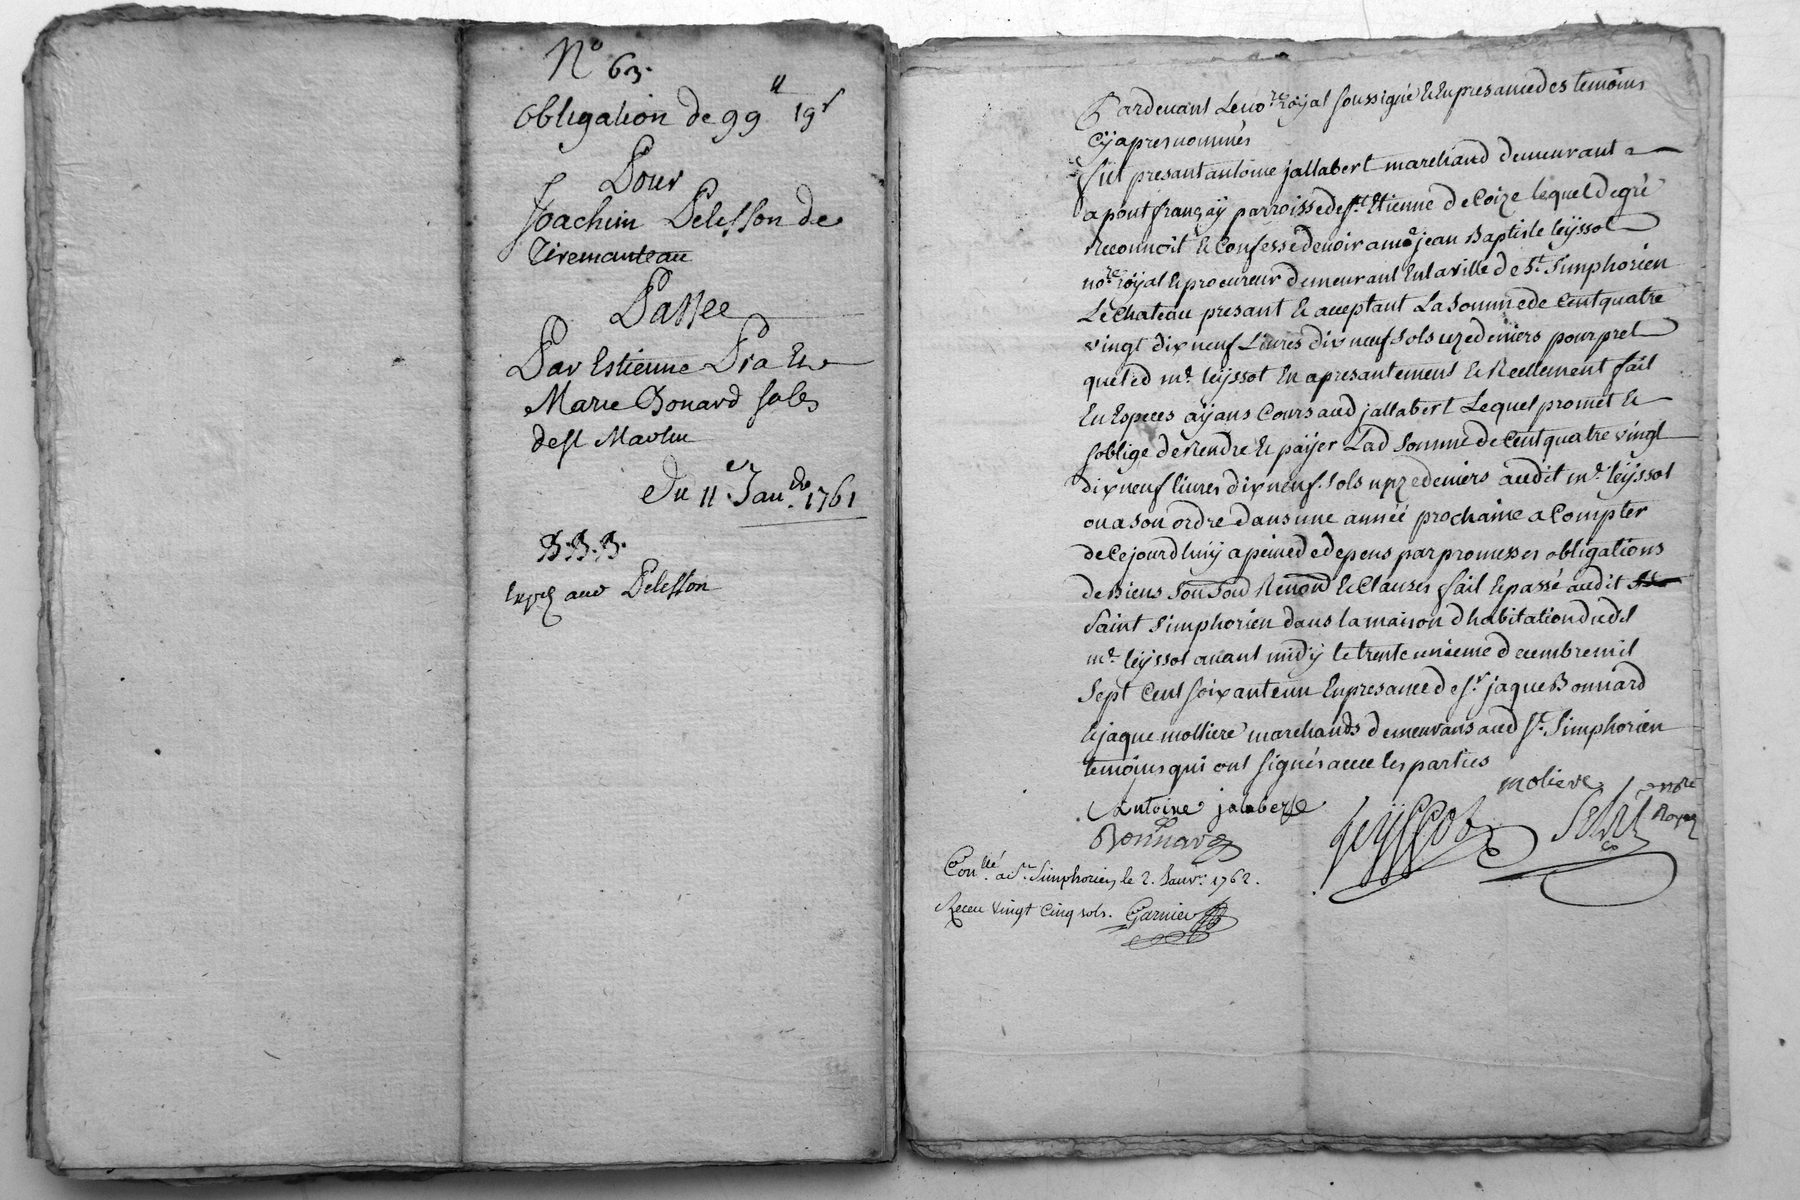 N° 63.
obligation de 99ᴸᴸ 19ˢ
Pour
Joachim Pelesson de
Tiremanteau
Passee
Par Estienne Pra &
Marie Bonard
de st Martin
Du 11ᵉ Janᵛʳ. 1761
B.B.B.
Expé aud Pelesson
Pardevant le noʳᵉ royal soussigné & en presance des temoins
cy apres nommés
fut presant antoine jallabert marchand demeurant
a pont françay parroisse de sᵗ Etienne de Coize lequel de gré
reconnoit & Confesse devoir a mᵉ jean Baptiste leyssot
noʳᵉ royal & procureur demeurant en la ville de sᵗ. Simphorien
Le Chateau presant & acceptant La Somme de Cent quatre
vingt dix neuf Livres dix neuf sols unze deniers pour pret
que led mᵉ. leyssot en a presantement & Reellement fait
En Especes ayans Cours aud jallabert Lequel promet &
soblige de rendre & payer Lad Somme de Cent quatre vingt
dix neuf livres dix neuf sols unze deniers audit mᵉ. leyssot
ou a son ordre dans une année prochaine a Compter
de Ce jourdhuy a peine de depens par promesses obligations
de Biens Soum Renon & Clauses fait & passé audit
Saint Simphorien dans la maison dhabitation dudit
mᵉ. leyssot avant midy le trente unieme decembre mil
Sept Cent soixante un En presance de sʳ. jaque Bonnard
& jaque molliere marchands demeurans aud sᵗ. Simphorien
temoins qui ont signés avec les parties
moliere
Antoine jalabert
Bonnard
leyssot
noʳᵉ
Royal
Conˡˡᵉ. a sᵗ. Simphorien le 2. Janvʳ. 1762.
Receu vingt cinq sols. Garnier